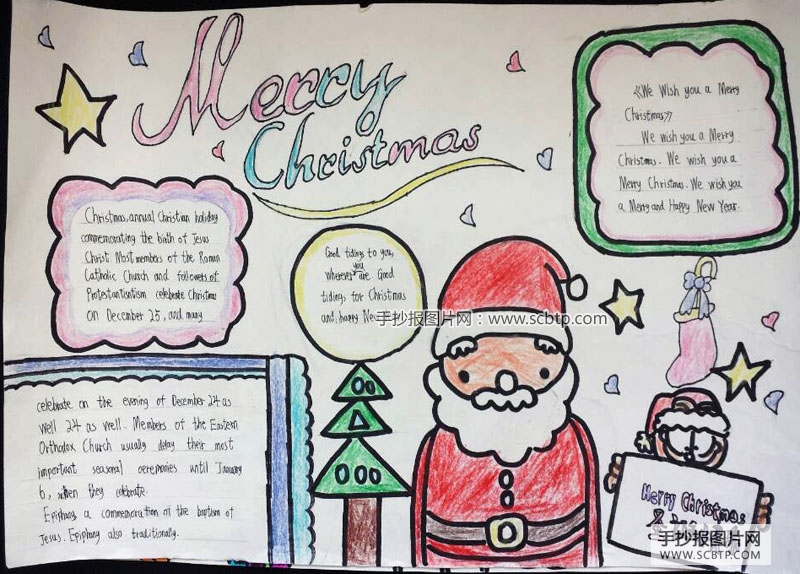 Merry
Christmas
《We Wish you a Merry
Christmas》
We wish you a Merry
Christmas. We wish you a
Merry Christmas. We wish you
a Merry and Happy New Year.
Christmas, annual Christian holiday
commemorating the birth of Jesus
Christ. Most members of the Roman
Catholic Church and followers of
Protestantism celebrate Christmas
on December 25, and many
Good tidings to you,
wherever you are Good
tidings for Christmas
and happy New
手抄报图片网:www.scbtp.com
celebrate on the evening of December 24 as
well 24 as well. Members of the Eastern
Orthodox Church usually delay their most
important seasonal ceremonies until January
6, when they celebrate.
Epiphany a commemoration of the baptism of
Jesus. Epiphany also traditionally.
Merry Christmas
手抄报图片网
WWW.SCBTP.COM